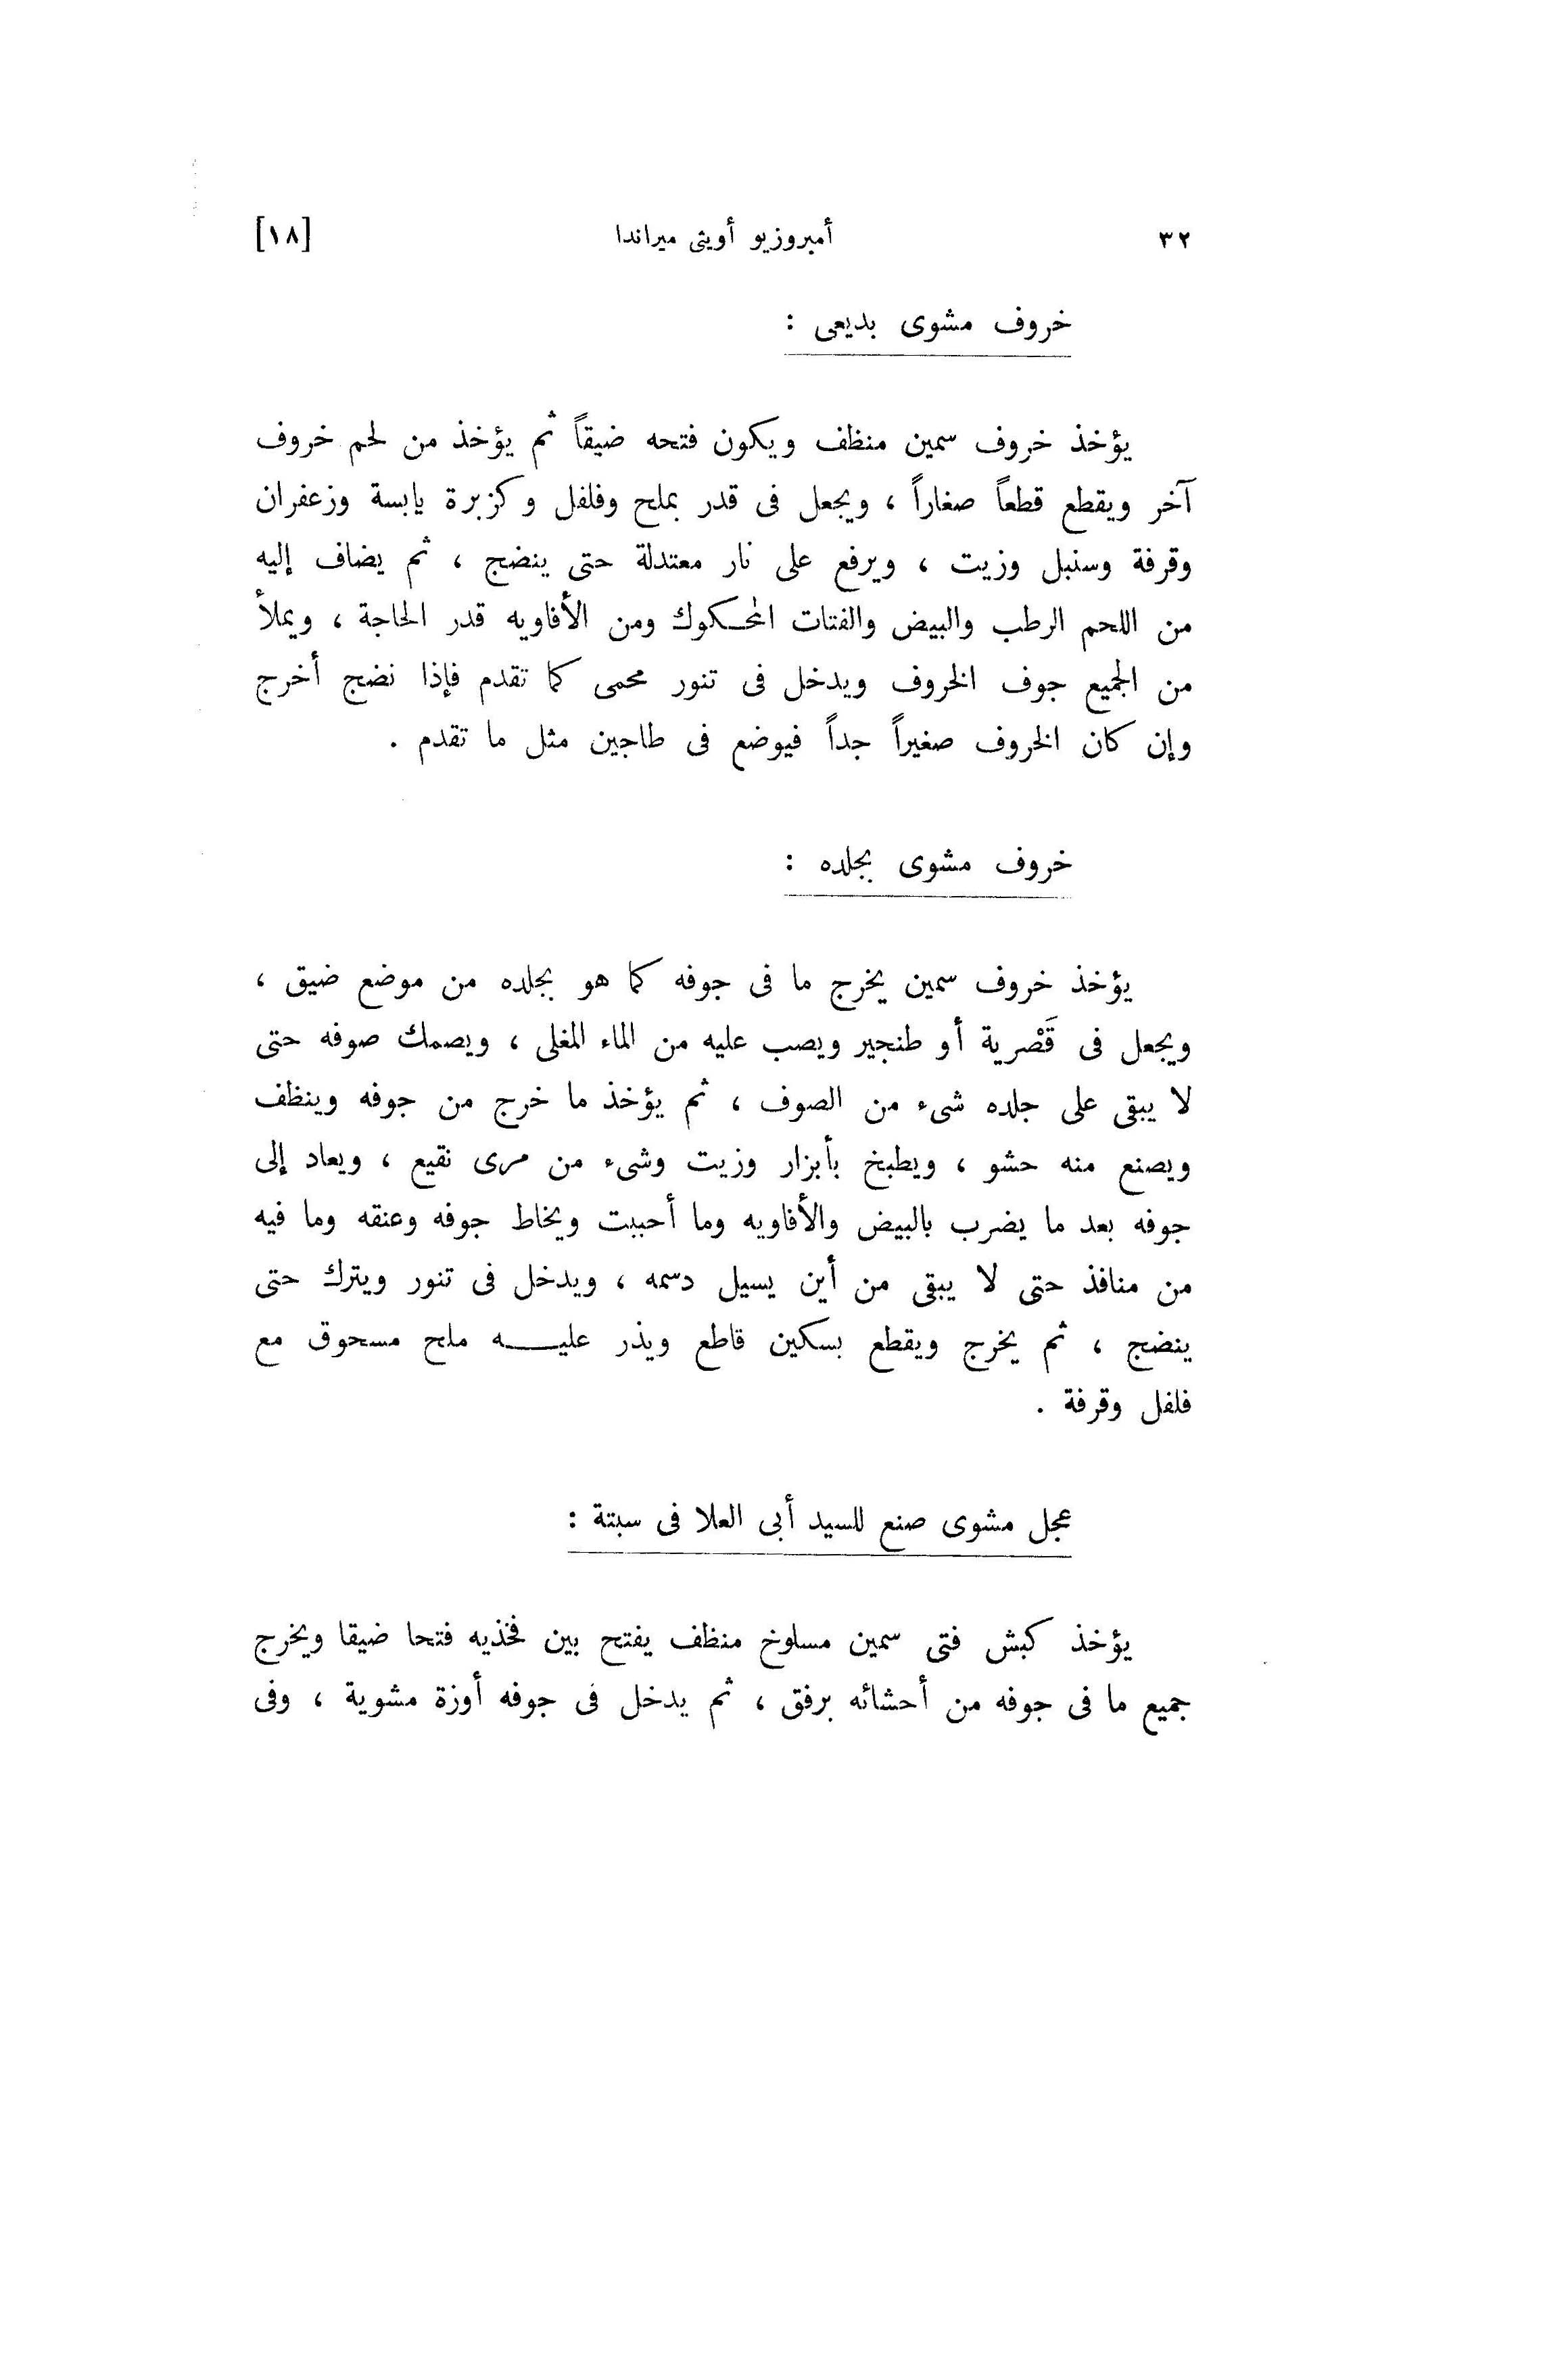 ٣٢ أمبروزيو أويثى ميراندا [١٨]
خروف مشوى بديعى :
يؤخذ خروف سمين منظف ويكون فتحه ضيقاً ثم يؤخذ من لحم خروف
آخر ويقطع قطعاً صغاراً ، ويجعل فى قدر بملح وفلفل وكزبرة يابسة وزعفران
وقرفة وسنبل وزيت ، ويرفع على نار معتدلة حتى ينضج ، ثم يضاف إليه
من اللحم الرطب والبيض والفتات المحكوك ومن الأفاويه قدر الحاجة ، ويملأ
من الجميع جوف الخروف ويدخل فى تنور محمى كما تقدم فإذا نضج أخرج
وإن كان الخروف صغيراً جداً فيوضع فى طاجين مثل ما تقدم .
خروف مشوى بجلده :
يؤخذ خروف سمين يخرج ما فى جوفه كما هو بجلده من موضع ضيق ،
ويجعل فى قَصْرية أو طنجير ويصب عليه من الماء المغلى ، ويصمك صوفه حتى
لا يبقى على جلده شىء من الصوف ، ثم يؤخذ ما خرج من جوفه وينظف
ويصنع منه حشو ، ويطبخ بأبزار وزيت وشىء من مرى نقيع ، ويعاد إلى
جوفه بعد ما يضرب بالبيض والأفاويه وما أحببت ويخاط جوفه وعنقه وما فيه
من منافذ حتى لا يبقى من أين يسيل دسمه ، ويدخل فى تنور ويترك حتى
ينضج ، ثم يخرج ويقطع بسكين قاطع ويذر عليه ملح مسحوق مع
فلفل وقرفة .
عجل مشوى صنع للسيد أبى العلا فى سبتة :
يؤخذ كبش فتى سمين مسلوخ منظف يفتح بين فخذيه فتحا ضيقا ويخرج
جميع ما فى جوفه من أحشائه برفق ، ثم يدخل فى جوفه أوزة مشوية ، وفى